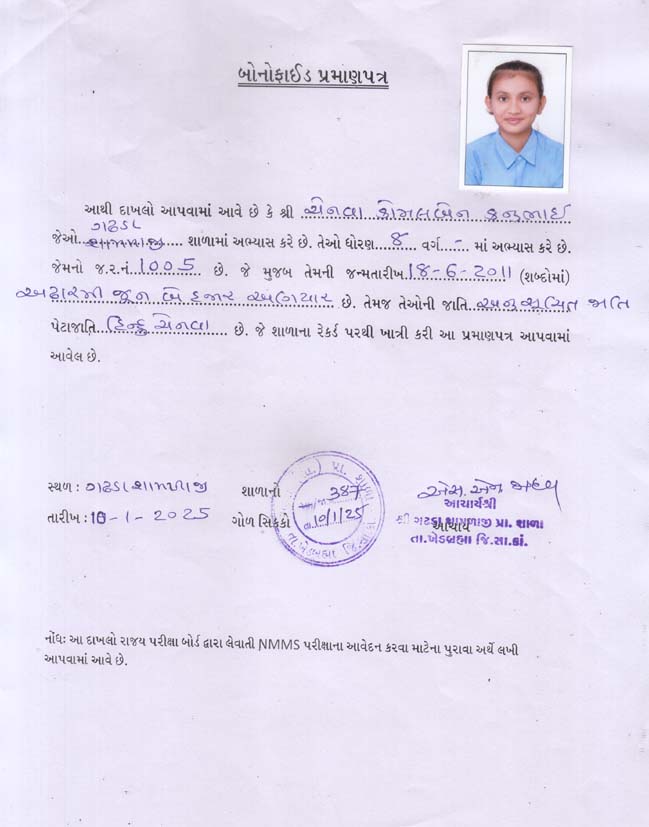 બોનોફાઈડ પ્રમાણપત્ર
આથી દાખલો આપવામાં આવે છે કે શ્રી ચેનવા કોમલબેન કનુભાઈ
ગઢડા
જેઓ શામળાજી શાળામાં અભ્યાસ કરે છે. તેઓ ધોરણ 8 વર્ગ - માં અભ્યાસ કરે છે.
જેમનો જ.ર.નં. 1005 છે. જે મુજબ તેમની જન્મતારીખ 18-6-2011 (શબ્દોમાં)
અઢારમી જૂન બે હજાર અગિયાર છે. તેમજ તેઓની જાતિ અનુસૂચિત જાતિ
પેટાજાતિ હિન્દુ ચેનવા છે. જે શાળાના રેકર્ડ પરથી ખાત્રી કરી આ પ્રમાણપત્ર આપવામાં
આવેલ છે.
સ્થળ : ગઢડા શામળાજી
તારીખ : 10-1-2025
શાળાનો
ગોળ સિક્કો
પ્રા. શાળા
387
10/1/25
તા.ખેડબ્રહ્મા જિ.સા.કાં.
આચાર્યશ્રી
આચાર્ય
શ્રી ગઢડા શામળાજી પ્રા. શાળા
તા.ખેડબ્રહ્મા જિ.સા.કાં.
નોંધઃ આ દાખલો રાજ્ય પરીક્ષા બોર્ડ દ્વારા લેવાતી NMMS પરીક્ષાના આવેદન કરવા માટેના પુરાવા અર્થે લખી
આપવામાં આવે છે.